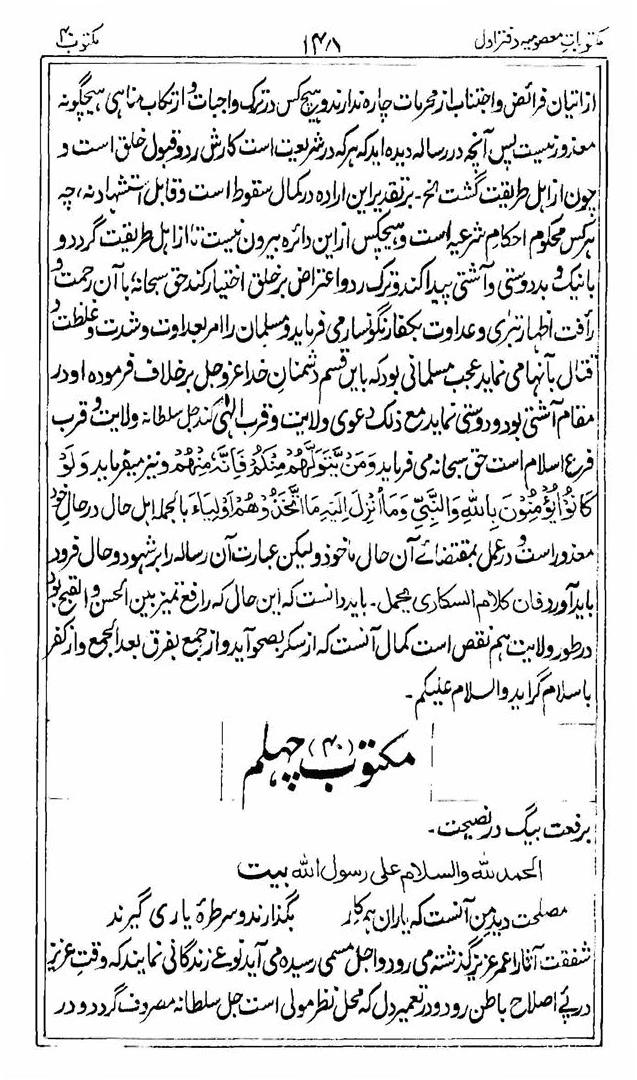 مکتوب ۴۰
۱۴۸
مکتوبات معصومیہ دفتر اول
از اتیان فرائض و اجتناب از محرمات چارہ ندارند و ہیچ کس در ترک واجبات و ارتکاب مناہی ہیچگونہ
معذور نیست پس آنچہ در رسالہ دیدہ اید کہ ہر کہ در شریعت است کارش رد و قبول خلق است و
چون از اہل طریقت گشت الخ۔ بر تقدیر این ارادہ در کمال سقوط است و قابل استشہاد نہ، چہ
ہر کس محکوم احکام شرعیہ است و ہیچکس از این دائرہ بیرون نیست تا از اہل طریقت گردد و
با نیک و بد دوستی و آشتی پیدا کند و ترک رد و اعتراض بر خلق اختیار کند حق سبحانہ با آن رحمت و
رأفت اظہار تبری و عداوت بکفار نگونسار می فرماید و مسلمان را امر بعداوت و شدت و غلظت و
قتال بآنہا می نماید عجب مسلمانی بود کہ باین قسم دشمنان خدا عز و جل بر خلاف فرمودہ او در
مقام آشتی بود و دوستی نماید مع ذلک دعوی ولایت و قرب الٰہی کند جل سلطانہ ولایت و قرب
فرع اسلام است حق سبحانہ می فرماید وَمَنْ يَّتَوَلَّهُمْ مِنْكُمْ فَإِنَّهُ مِنْهُمْ و نیز میفرماید وَلَوْ
كَانُوْا يُؤْمِنُوْنَ بِاللهِ وَالنَّبِيِّ وَمَا أُنْزِلَ إِلَيْهِ مَا اتَّخَذُوْهُمْ أَوْلِيَاءَ بالجملہ اہل حال در حال خود
معذور است و در عمل بمقتضائے آن حالی ماخوذ و لیکن عبارت آن رسالہ را بر شہود و حال فرود
باید آورد فان کلام السکاری یحمل۔ باید دانست کہ این حال کہ رافع تمیز بین الحسن و القبح بود
در طور ولایت ہم نقص است کمال آنست کہ از سکر بصحو آید و از جمع بفرق بعد الجمع و از کفر
باسلام گراید والسلام علیکم۔
مکتوب (۴۰) چہلم
برفعت بیگ در نصیحت۔
الحمد للہ والسلام علی رسول اللہ بیت
مصلحت دید من آنست کہ یاران ہمہ کار بگذارند و سر طرۂ یاری گیرند
شفقت آثارا عمر عزیز گذشتہ می رود و اجل مسمی رسیدہ می آید نوعے زندگانی نمایند کہ وقت عزیز
در پئے اصلاح باطن رود و در تعمیر دل کہ محل نظر مولی است جل سلطانہ مصروف گردد و در